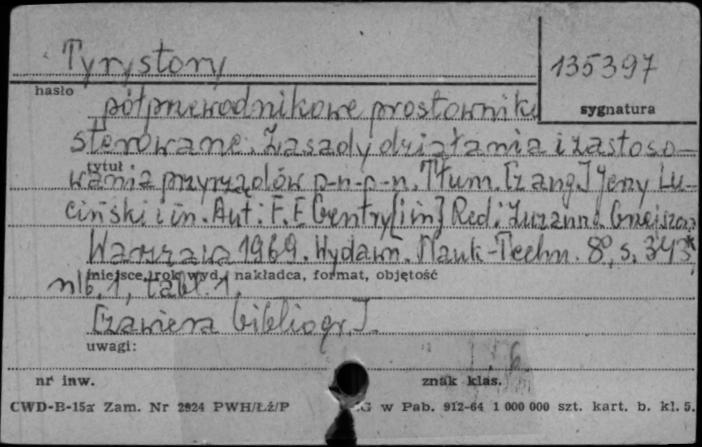 Tyrystory
135397
hasło
sygnatura
półprzewodnikowe prostowniki
sterowane. Zasady działania i zastoso-
tytuł
wania przyrządów p-n-p-n. Tłum. [z ang.] Jerzy Lu-
ciński i in. Aut: F. E. Gentry [i in] Red: Zuzanna Grzejszczak
Warszawa 1969. Wydawn. Nauk-Techn. 8°, s. 343,
miejsce, rok wyd., nakładca, format, objętość
nlb. 1, tabl. 1.
[zawiera bibliogr.].
uwagi:
6.
nr inw.
znak klas.
CWD-B-15a Zam. Nr 2924 PWH/Łź/P
G w Pab. 912-64 1 000 000 szt. kart. b. kl. 5.